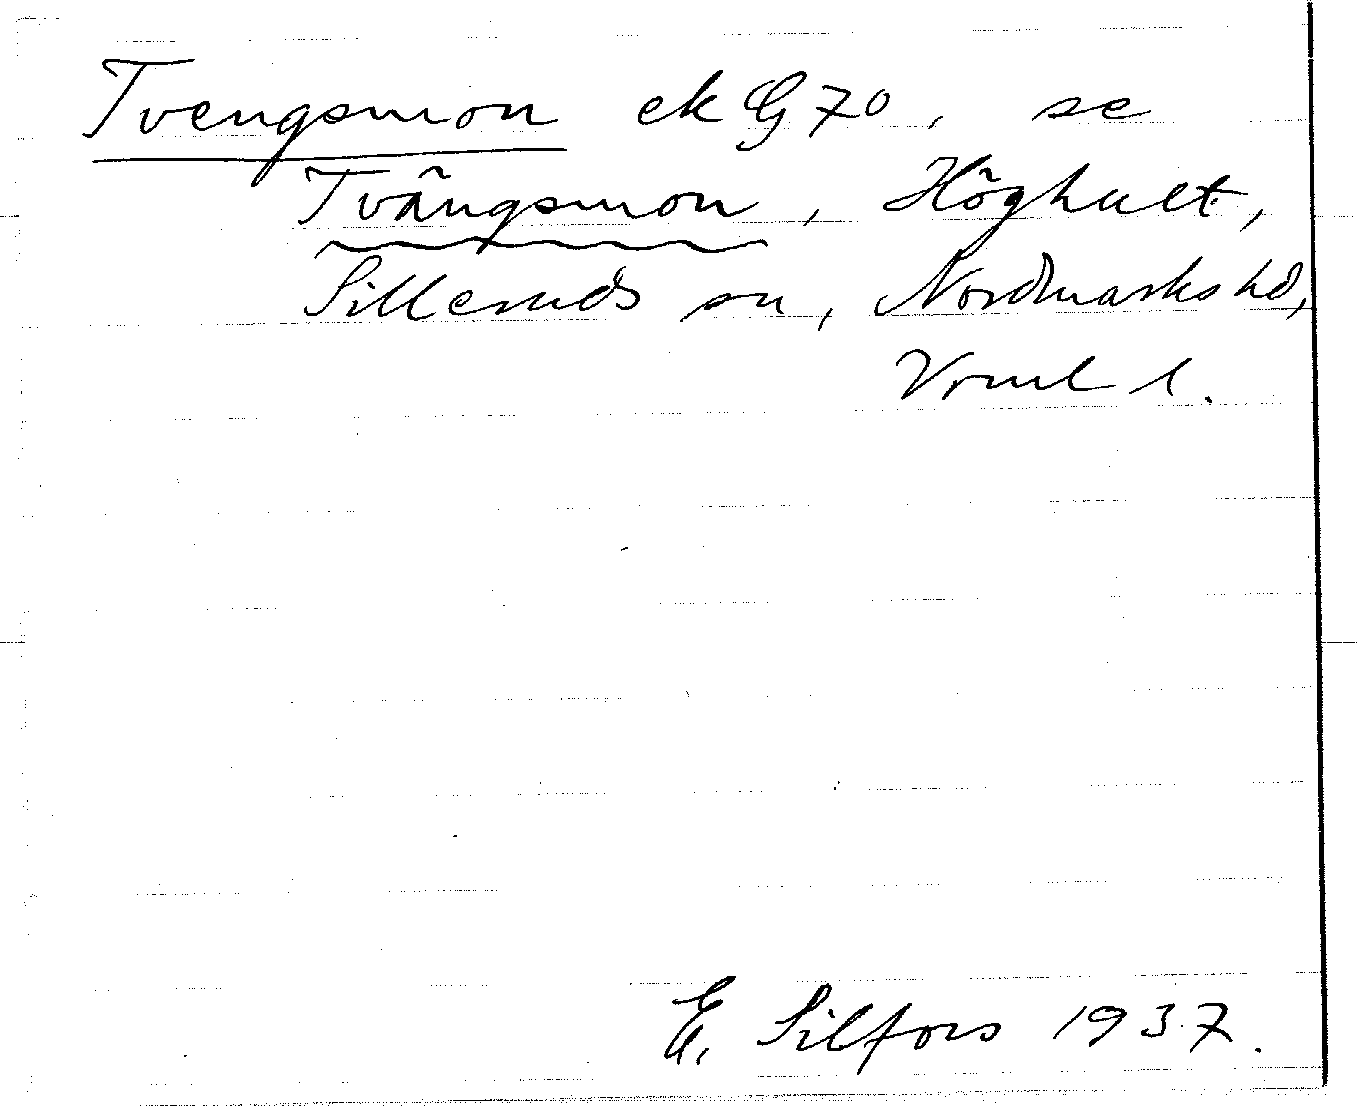 Tvengsmon ek G 70, se
Tvängsmon, Höghult,
Silleruds sn, Nordmarks hd,
Vrml l.
E. Silfors 1937.